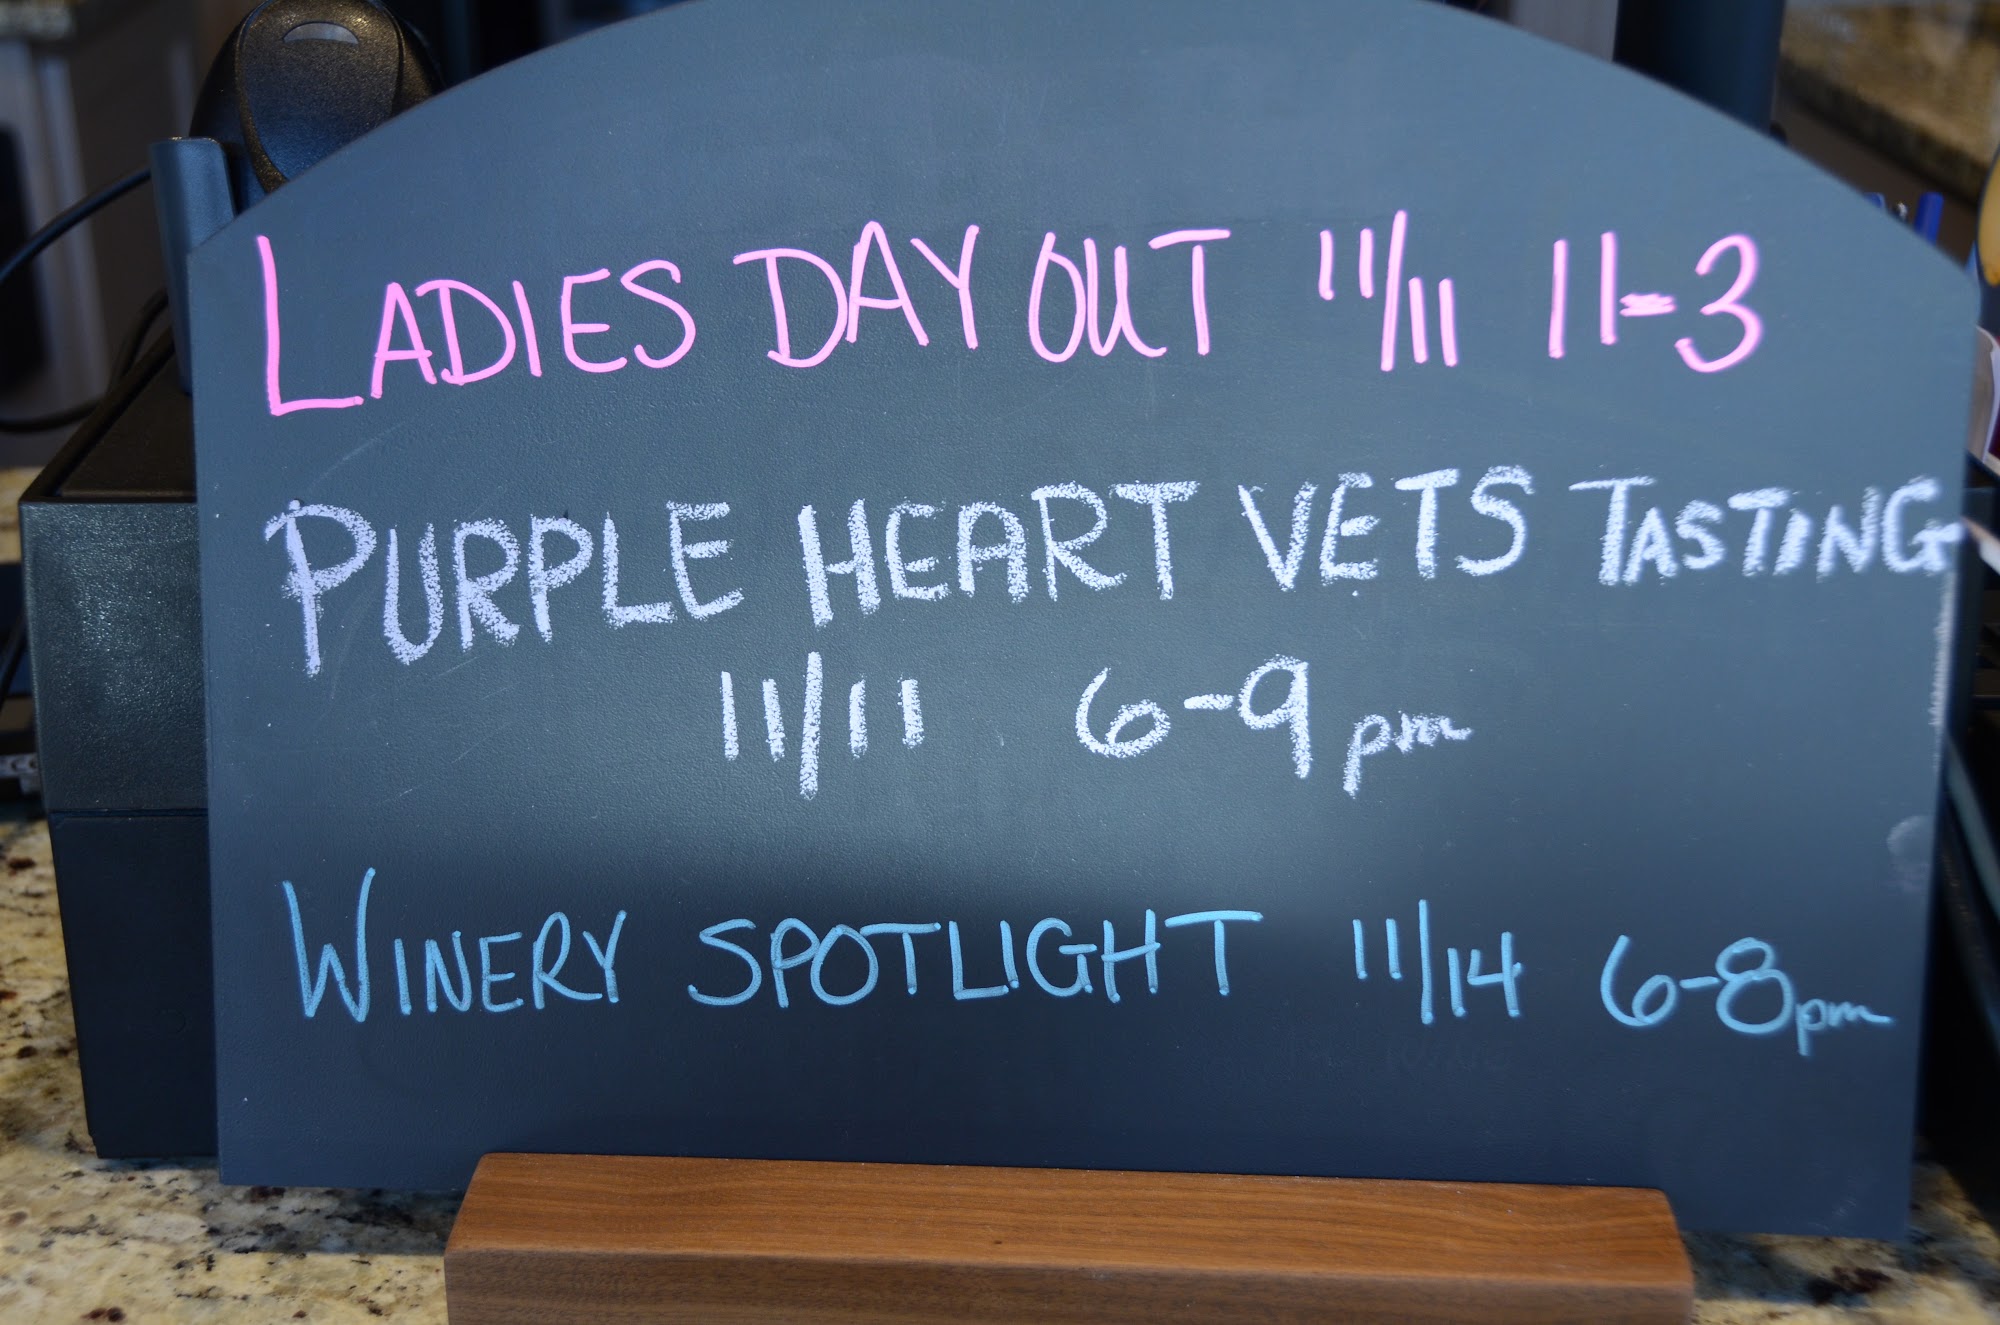 LADIES DAY OUT 11/11 11-3
PURPLE HEART VETS TASTING
11/11 6-9pm
WINERY SPOTLIGHT 11/14 6-8pm